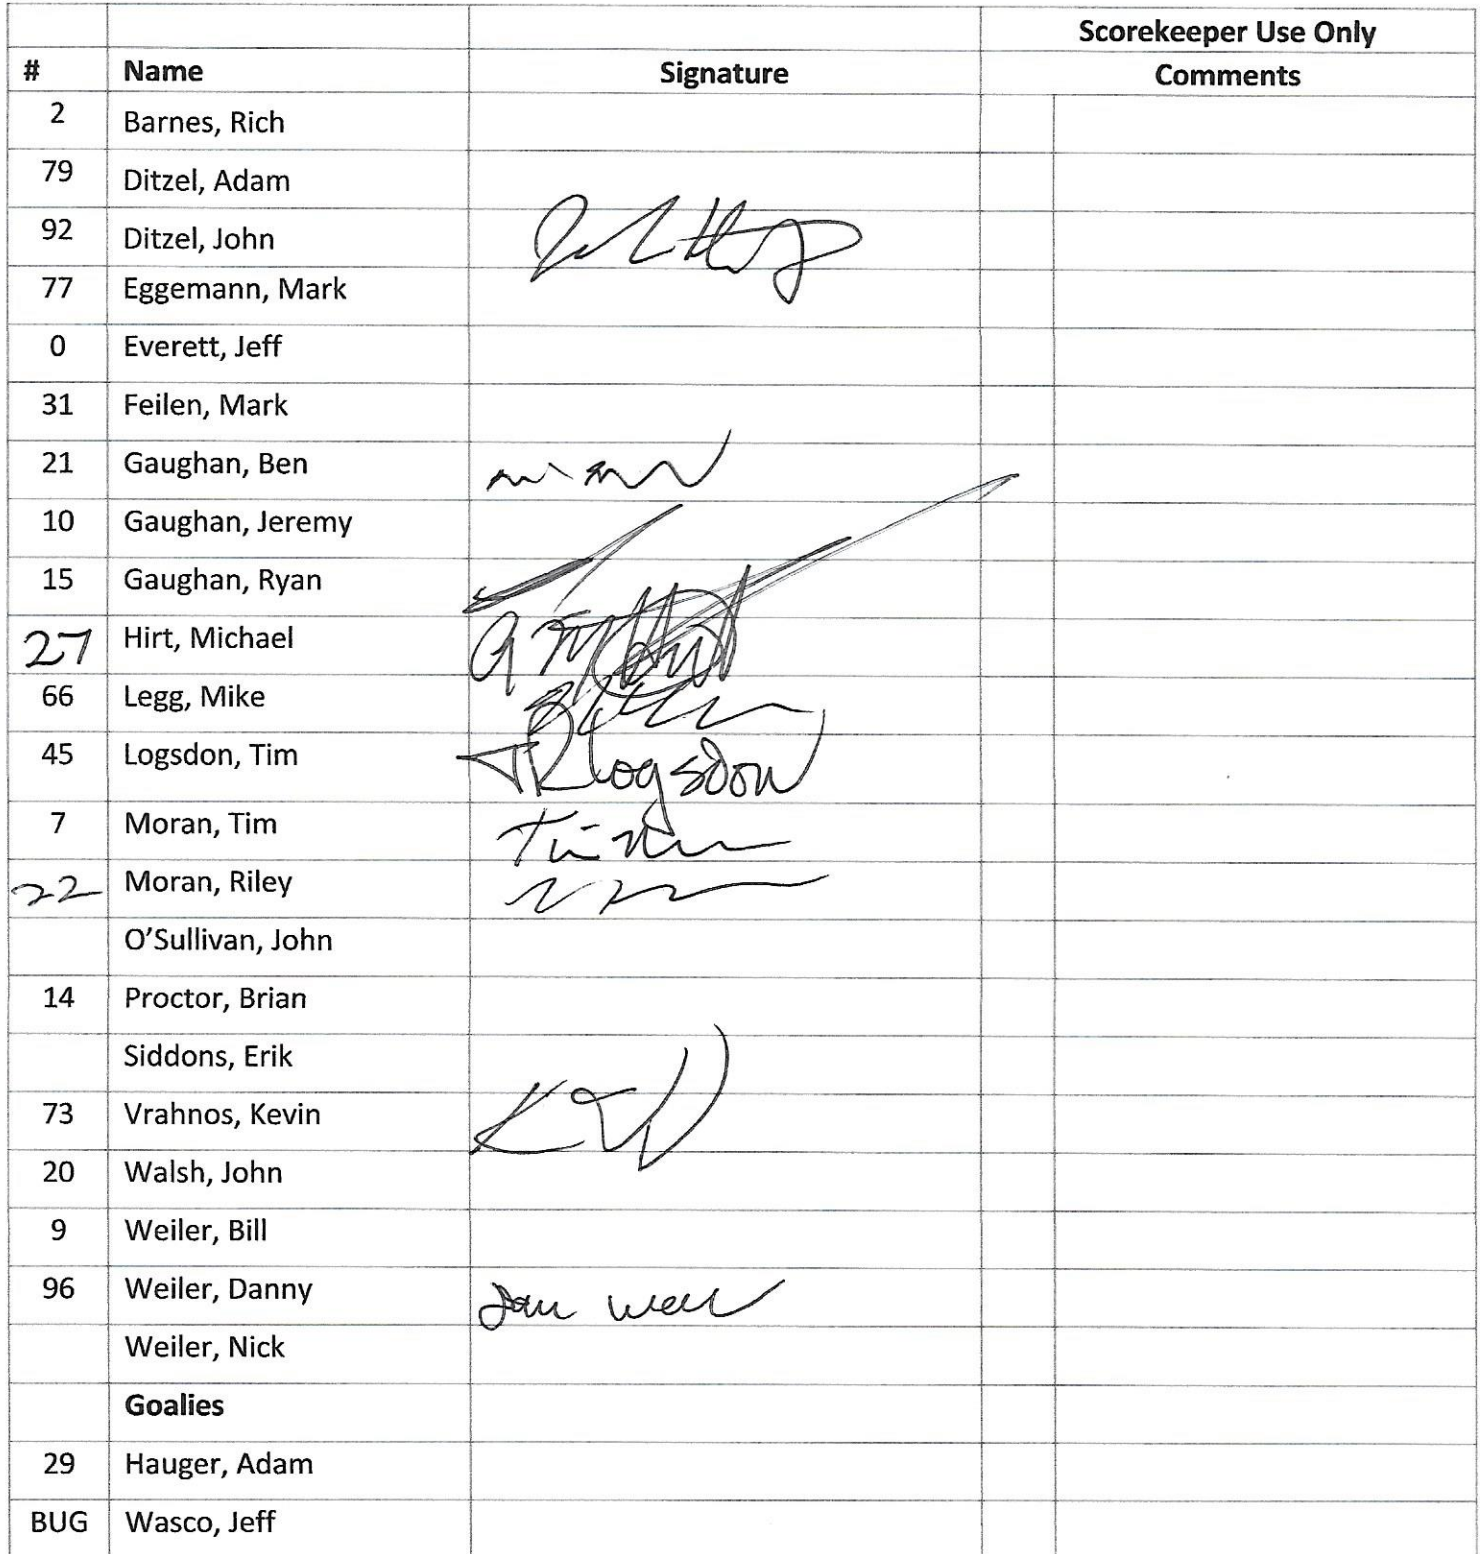 Scorekeeper Use Only
# Name Signature Comments
2 Barnes, Rich
79 Ditzel, Adam
92 Ditzel, John
77 Eggemann, Mark
0 Everett, Jeff
31 Feilen, Mark
21 Gaughan, Ben
10 Gaughan, Jeremy
15 Gaughan, Ryan
27 Hirt, Michael
66 Legg, Mike
45 Logsdon, Tim TR Logsdon
7 Moran, Tim Tim
22 Moran, Riley
O'Sullivan, John
14 Proctor, Brian
Siddons, Erik
73 Vrahnos, Kevin
20 Walsh, John
9 Weiler, Bill
96 Weiler, Danny Dan
Weiler, Nick
Goalies
29 Hauger, Adam
BUG Wasco, Jeff